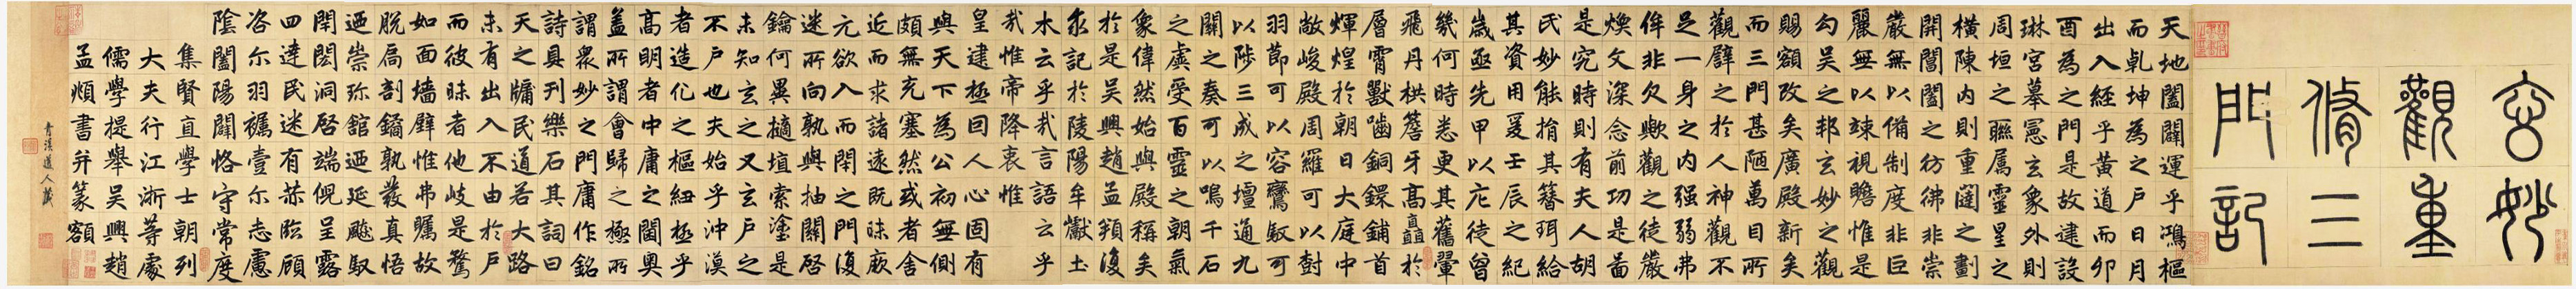 玄妙
觀重
脩三
門記
天地闔闢運乎鴻樞
而乹坤為之戶日月
出入經乎黄道而卯
酉為之門是故建設
琳宮摹憲玄象外則
周垣之聮属靈星之
横陳内則重闥之劃
開閶闔之彷彿非崇
嚴無以俻制度非巨
麗無以竦視瞻惟是
勾吴之邦玄妙之觀
賜額改矣廣殿新矣
而三門甚陋萬目所
觀譬之於人神觀不
足一身之内强弱弗
侔非欠歟觀之徒嚴
煥文深念前功是啚
是究時則有夫人胡
氏妙能捐其簪珥給
其資用爰壬辰之紀
歲亟先甲以庀徒曾
幾何時悉更其舊翬
飛丹栱簷牙高矗於
層霄獸嚙銅鐶鋪首
輝煌於朝日大庭中
敞峻殿周羅可以樹
羽節可以容鸞馭可
以陟三成之壇通九
關之奏可以鳴千石
之虡受百靈之朝氣
象偉然始與殿稱矣
於是吴興趙孟頫復
求記於陵陽牟巘土
木云乎哉言語云乎
哉惟帝降衷惟
皇建極囬人心固有
與天下為公初無側
頗無充塞然或者舍
近而求諸遠既昧厥
元欲入而閉之門復
迷所向孰與抽關啓
鑰何異擿埴索塗是
未知玄之又玄戶之
不戶也夫始乎沖漠
者造化之樞紐極乎
高明者中庸之閫奥
蓋所謂會歸之極所
謂衆妙之門庸作銘
詩具刊樂石其詞曰
天之牖民道若大路
未有出入不由於戶
而彼昧者他岐是騖
如面墻壁惟弗矚故
脱扄剖鐍孰發真悟
迺崇珎館迺延飇馭
閈閎洞啓端倪呈露
四達民迷有赫臨顧
咨尔羽襴壹尔志慮
陰闔陽闢恪守常度
集賢直學士朝列
大夫行江浙等處
儒學提舉吴興趙
孟頫書并篆額
青溪道人藏